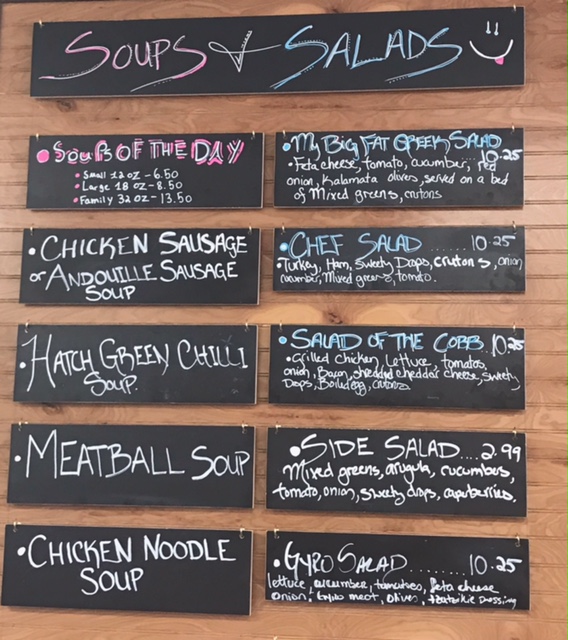 Soups & Salads
• Soups OF THE DAY
• Small 12 oz - 6.50
• Large 18 oz - 8.50
• Family 32 oz - 13.50
• Chicken Sausage
or Andouille Sausage
Soup
• Hatch Green Chilli
Soup.
• Meatball Soup
• Chicken Noodle
Soup
• My Big Fat Greek Salad
10.25
• Feta cheese, tomato, cucumber, red
onion, Kalamata olives, served on a bed
of Mixed greens, crutons
• Chef Salad ....... 10.25
• Turkey, Ham, Sweety Drops, crutons, onion
cucumber, Mixed greens, tomato.
• Salad of the Cobb. 10.25
• Grilled chicken, Lettuce, tomatos,
onion, Bacon, shredded cheddar cheese, sweety
Drops, Boiled egg, crutons
• Side Salad.... 2.99
Mixed greens, arugula, cucumbers,
tomato, onion, sweety drops, caperberries.
• Gyro Salad ........ 10.25
lettuce, cucumber, tomatoes, feta cheese
onion, Gyro meat, olives, tzatzikie Dressing